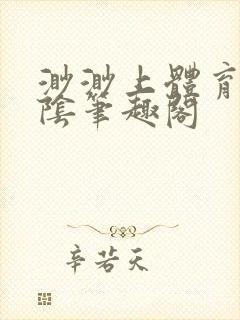 渺渺上體育
陰筆趣閣
辛若天